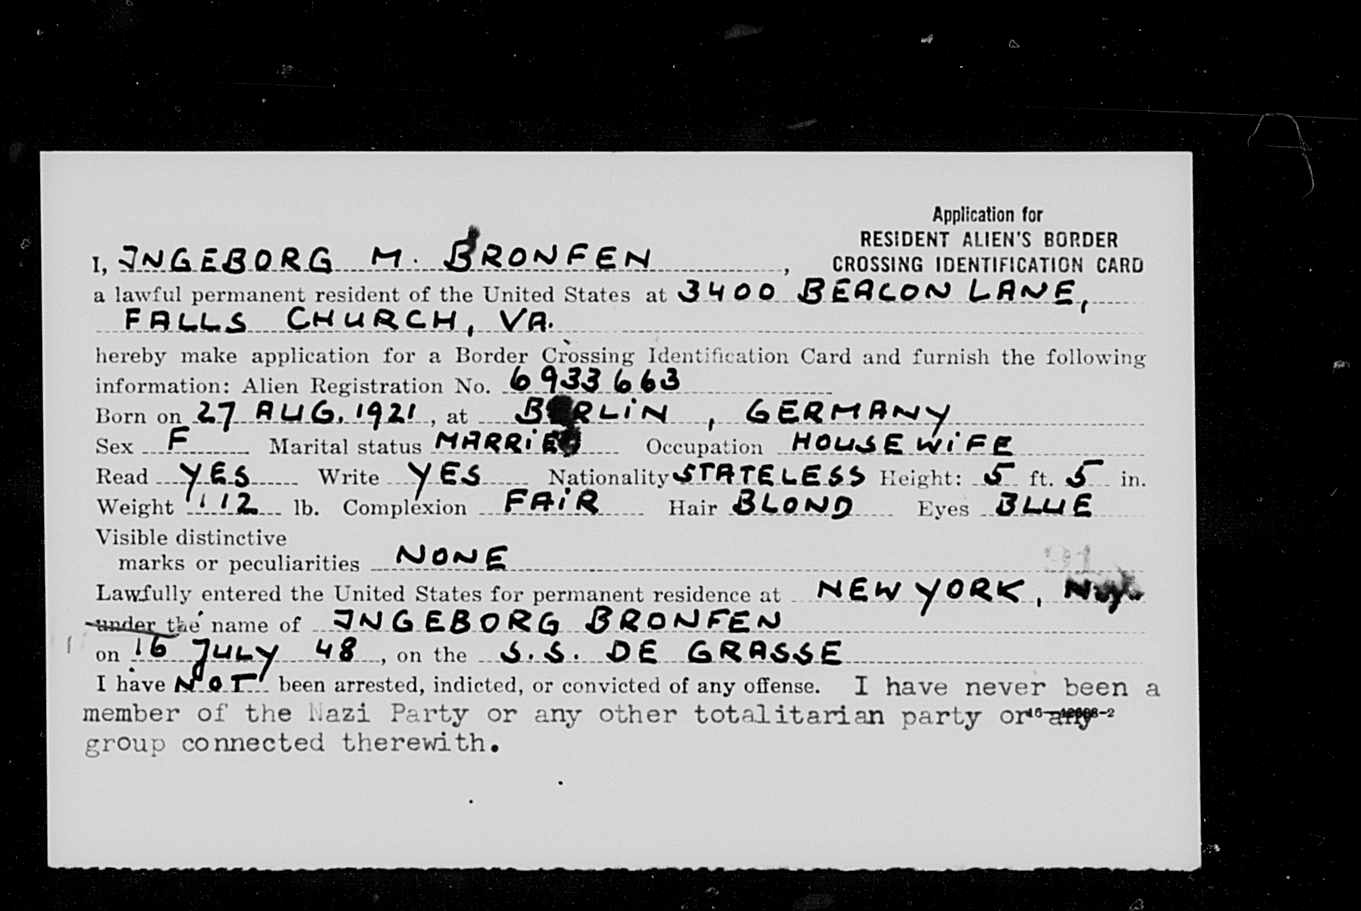 Application for
RESIDENT ALIEN'S BORDER
CROSSING IDENTIFICATION CARD
I, INGEBORG M. BRONFEN,
a lawful permanent resident of the United States at 3400 BEACON LANE,
FALLS CHURCH, VA.
hereby make application for a Border Crossing Identification Card and furnish the following
information: Alien Registration No. 6933663
Born on 27 AUG. 1921, at BERLIN, GERMANY
Sex F Marital status MARRIED Occupation HOUSEWIFE
Read YES Write YES Nationality STATELESS Height: 5 ft. 5 in.
Weight 112 lb. Complexion FAIR Hair BLOND Eyes BLUE
Visible distinctive
marks or peculiarities NONE
91
Lawfully entered the United States for permanent residence at NEW YORK, N.Y.
under the name of INGEBORG BRONFEN
on 16 JULY 48, on the S.S. DE GRASSE
I have NOT been arrested, indicted, or convicted of any offense. I have never been a
member of the Nazi Party or any other totalitarian party or any
group connected therewith.